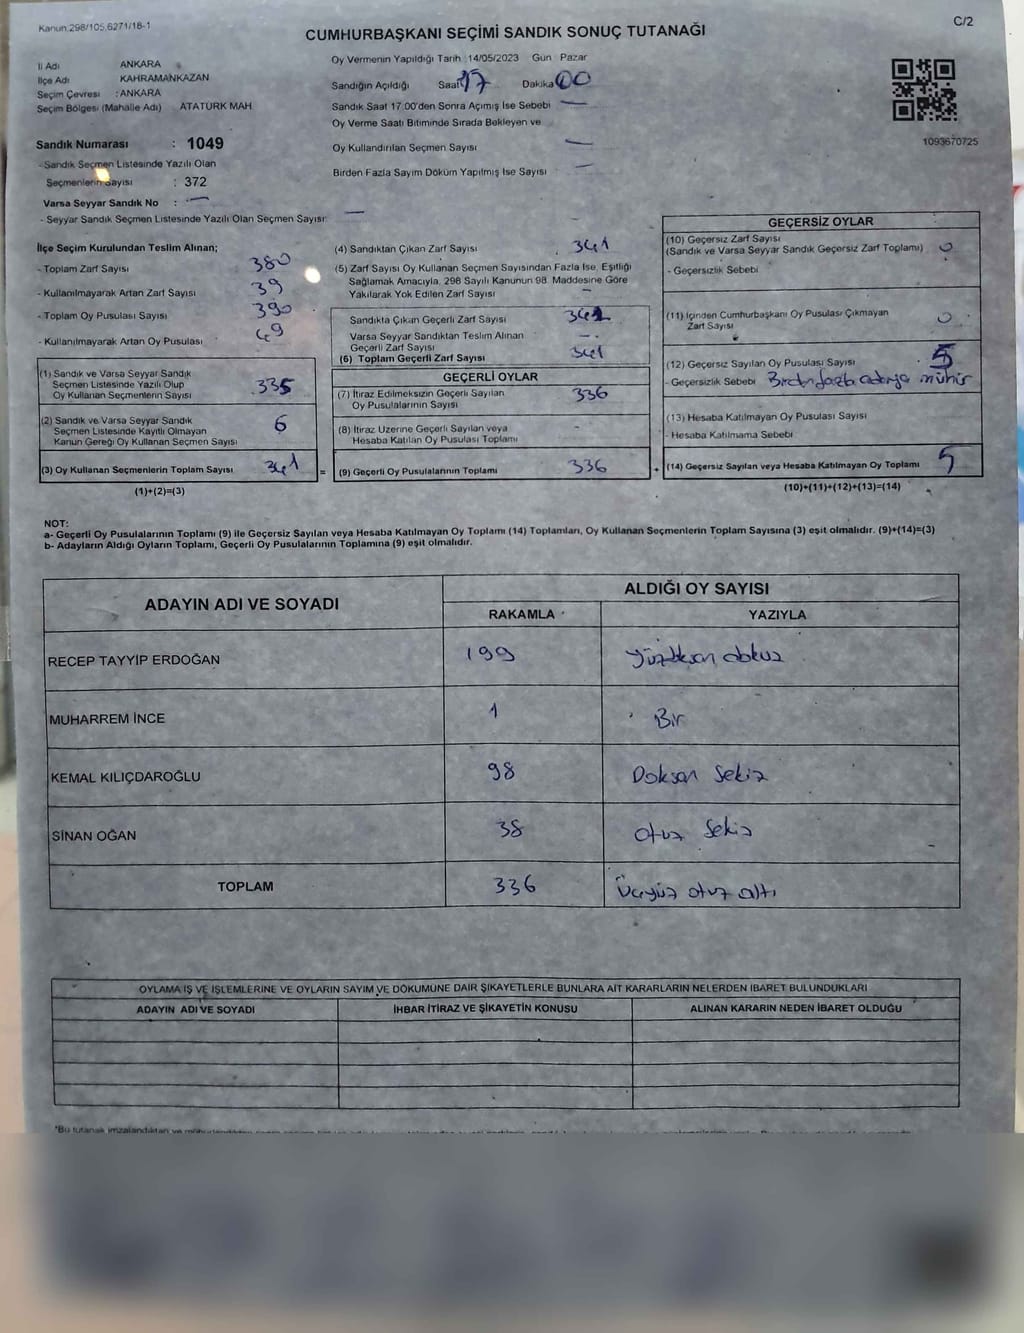 Kanun:298/105,6271/18-1
C/2
CUMHURBAŞKANI SEÇİMİ SANDIK SONUÇ TUTANAĞI
İl Adı ANKARA
İlçe Adı KAHRAMANKAZAN
Seçim Çevresi : ANKARA
Seçim Bölgesi (Mahalle Adı) ATATÜRK MAH
Sandık Numarası : 1049
- Sandık Seçmen Listesinde Yazılı Olan
Seçmenlerin Sayısı : 372
Varsa Seyyar Sandık No : —
- Seyyar Sandık Seçmen Listesinde Yazılı Olan Seçmen Sayısı: —
Oy Vermenin Yapıldığı Tarih :14/05/2023 Gün Pazar
Sandığın Açıldığı Saat 17 Dakika 00
Sandık Saat 17.00'den Sonra Açımış İse Sebebi —
Oy Verme Saati Bitiminde Sırada Bekleyen ve
Oy Kullandırılan Seçmen Sayısı —
Birden Fazla Sayım Döküm Yapılmış İse Sayısı —
1093670725
İlçe Seçim Kurulundan Teslim Alınan;
- Toplam Zarf Sayısı 380
- Kullanılmayarak Artan Zarf Sayısı 39
- Toplam Oy Pusulası Sayısı 390
- Kullanılmayarak Artan Oy Pusulası 49
(1) Sandık ve Varsa Seyyar Sandık
Seçmen Listesinde Yazılı Olup
Oy Kullanan Seçmenlerin Sayısı 335
(2) Sandık ve Varsa Seyyar Sandık
Seçmen Listesinde Kayıtlı Olmayan
Kanun Gereği Oy Kullanan Seçmen Sayısı 6
(3) Oy Kullanan Seçmenlerin Toplam Sayısı 341 =
(1)+(2)=(3)
(4) Sandıktan Çıkan Zarf Sayısı 341
(5) Zarf Sayısı Oy Kullanan Seçmen Sayısından Fazla İse, Eşitliği
Sağlamak Amacıyla, 298 Sayılı Kanunun 98. Maddesine Göre
Yakılarak Yok Edilen Zarf Sayısı -
Sandıkta Çıkan Geçerli Zarf Sayısı 341
Varsa Seyyar Sandıktan Teslim Alınan
Geçerli Zarf Sayısı -
(6) Toplam Geçerli Zarf Sayısı 341
GEÇERLİ OYLAR
(7) İtiraz Edilmeksizin Geçerli Sayılan
Oy Pusulalarının Sayısı 336
(8) İtiraz Üzerine Geçerli Sayılan veya
Hesaba Katılan Oy Pusulası Toplamı -
(9) Geçerli Oy Pusulalarının Toplamı 336 +
GEÇERSİZ OYLAR
(10) Geçersiz Zarf Sayısı
(Sandık ve Varsa Seyyar Sandık Geçersiz Zarf Toplamı) 0
- Geçersizlik Sebebi
(11) İçinden Cumhurbaşkanı Oy Pusulası Çıkmayan
Zarf Sayısı 0
(12) Geçersiz Sayılan Oy Pusulası Sayısı 5
- Geçersizlik Sebebi Birden fazla adaya mühür
(13) Hesaba Katılmayan Oy Pusulası Sayısı
- Hesaba Katılmama Sebebi
(14) Geçersiz Sayılan veya Hesaba Katılmayan Oy Toplamı 5
(10)+(11)+(12)+(13)=(14)
NOT:
a- Geçerli Oy Pusulalarının Toplamı (9) ile Geçersiz Sayılan veya Hesaba Katılmayan Oy Toplamı (14) Toplamları, Oy Kullanan Seçmenlerin Toplam Sayısına (3) eşit olmalıdır. (9)+(14)=(3)
b- Adayların Aldığı Oyların Toplamı, Geçerli Oy Pusulalarının Toplamına (9) eşit olmalıdır.
ADAYIN ADI VE SOYADI
ALDIĞI OY SAYISI
RAKAMLA YAZIYLA
RECEP TAYYİP ERDOĞAN 199 yüzdoksan dokuz
MUHARREM İNCE 1 Bir
KEMAL KILIÇDAROĞLU 98 Doksan Sekiz
SİNAN OĞAN 38 otuz Sekiz
TOPLAM 336 Üçyüz otuz altı
OYLAMA İŞ VE İŞLEMLERİNE VE OYLARIN SAYIM VE DÖKÜMÜNE DAİR ŞİKAYETLERLE BUNLARA AİT KARARLARIN NELERDEN İBARET BULUNDUKLARI
ADAYIN ADI VE SOYADI İHBAR İTİRAZ VE ŞİKAYETİN KONUSU ALINAN KARARIN NEDEN İBARET OLDUĞU